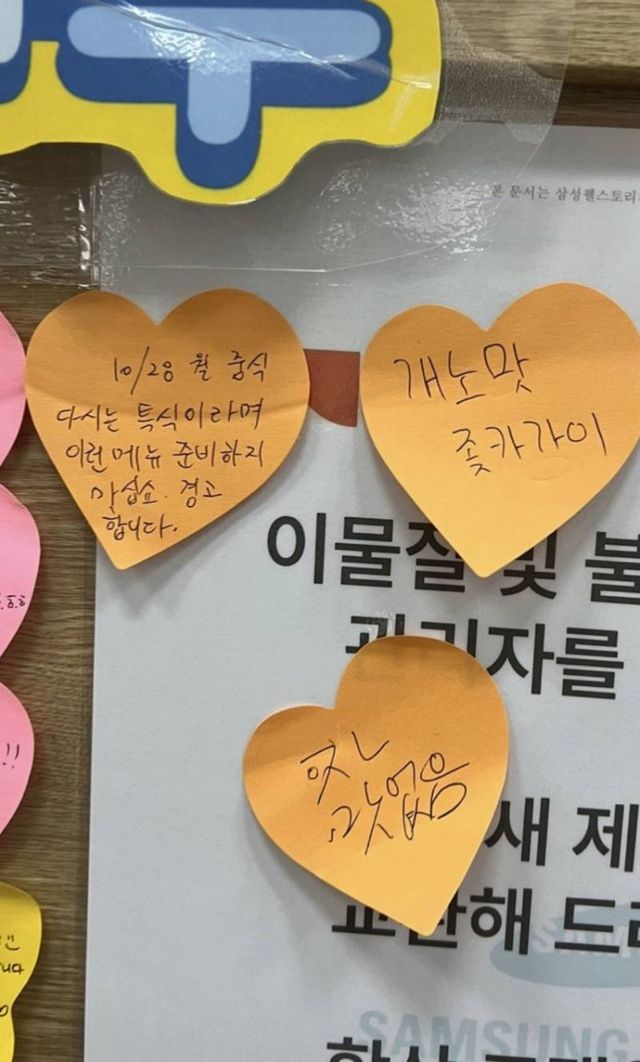 본 문서는 삼성웰스토리
10/28 월 중식
다시는 특식이라며
이런 메뉴 준비하지
마십쇼. 경고
합니다.
개노맛
좆카가이
이물질 및 불
관리자를
맛없음
새 제
교환해 드리
SAMSUNG
!!